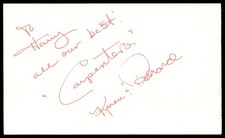 To
Harry
all our best!
"Carpenters"
Karen & Richard